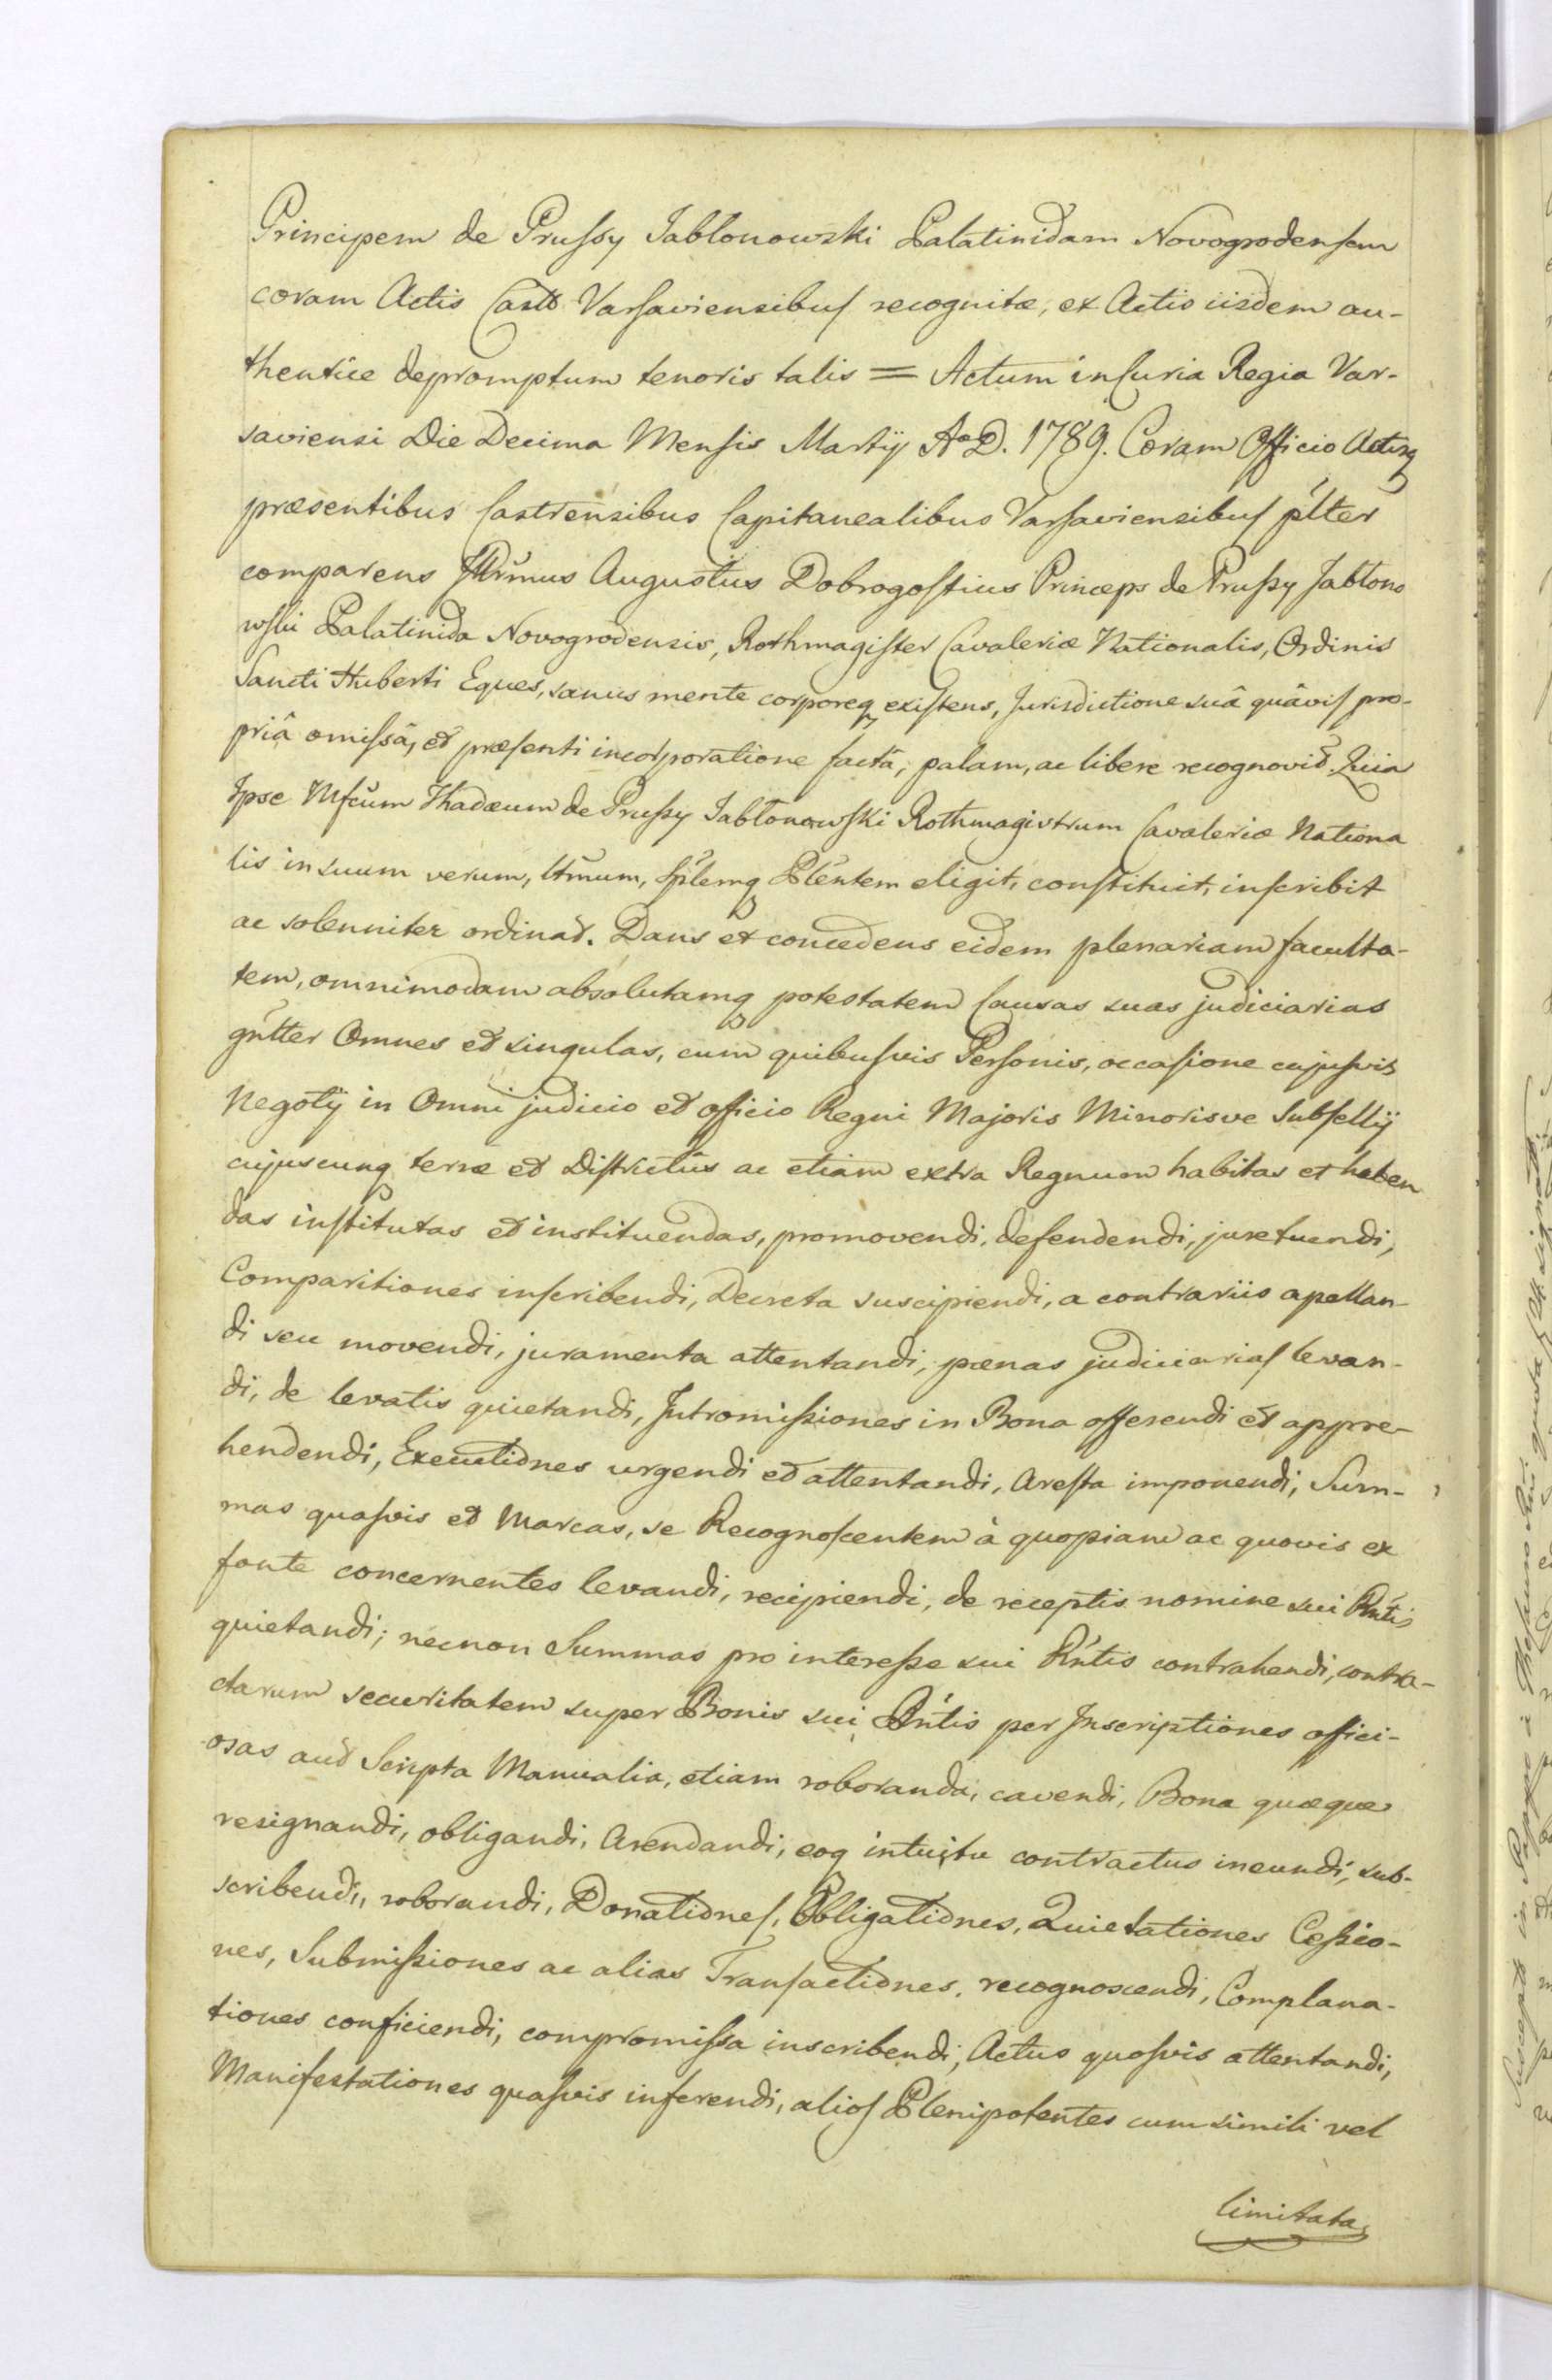 Principem de Prussy Jabłonowski Palatinidam Novogrodensem
coram Actis Castr Varsaviensibus recognitæ, ex Actis iisdem au-
thentice depromptum tenoris talis = Actum in Curia Regia Var-
saviensi Die Decima Mensis Martij Ao D. 1789. Coram Officio Actisq
præsentibus Castrensibus Capitanealibus Varsaviensibus plter
comparens Illrmus Augustus Dobrogostius Princeps de Prussy Jabłono
wski Palatinida Novogrodensis, Rothmagister Cavaleriæ Nationalis, Ordinis
Sancti Huberti Eques, sanus mente corporeq existens, Jurisdictione suâ quâvis pro-
priâ omissâ, et præsenti incorporatione factâ, palam, ac libere recognovit. Quia
Ipse Mfcum Thadæum de Prussy Jabłonowski Rothmagistrum Cavaleriæ Nationa
lis in suum verum, lttmum, splemq Plentem eligit, constituit, inscribit
ac solenniter ordinat. Dans et concedens eidem plenariam faculta-
tem, omnimodam absolutamq potestatem Causas suas judiciarias
gnlter Omnes et singulas, cum quibusvis Personis, occasione cujusvis
Negotij in Omni judicio et officio Regni Majoris Minorisve Subsellij
cujuscunq terræ et Districtûs ac etiam extra Regnum habitas et haben
das institutas et instituendas, promovendi, defendendi, jure tuendi,
Comparitiones inscribendi, Decreta suscipiendi, a contrariis apellan-
di seu movendi, juramenta attentandi, pœnas judiciarias levan-
di, de levatis quietandi, Intromissiones in Bona offerendi et appre-
hendendi, Executiones urgendi et attentandi, Aresta imponendi, Sum-
mas quasvis et Marcas, se Recognoscentem à quopiam ac quovis ex
fonte concernentes levandi, recipiendi, de receptis nomine sui Rntis
quietandi; necnon Summas pro interesse sui Rntis contrahendi, contra-
ctarum securitatem super Bonis sui Rntis per Inscriptiones offici-
osas aut Scripta Manualia, etiam roboranda, cavendi, Bona quæque
resignandi, obligandi, Arendandi, eoq intuitu contractus ineundi, sub-
scribendi, roborandi, Donationes, Obligationes, Quietationes Cessio-
nes, Submissiones ac alias Transactiones, recognoscendi, Complana-
tiones conficiendi, compromissa inscribendi, Actus quosvis attentandi,
Manifestationes quasvis inferendi, alios Plenipotentes cum simili vel
limitata